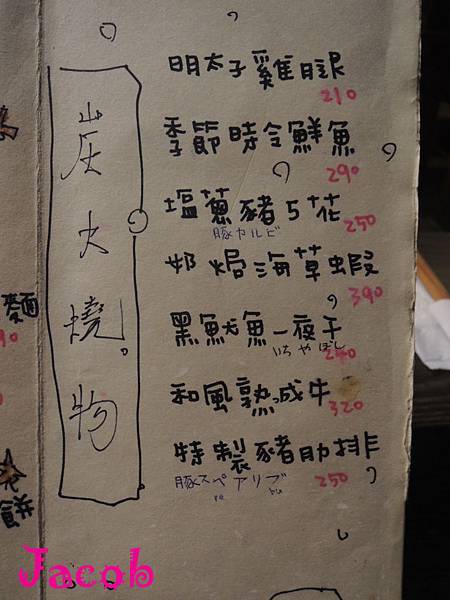 炭火燒物
明太子雞腿
210
季節時令鮮魚
290
塩蔥豬5花
250
豚カルビ
奶焗海草蝦
390
黑魷魚一夜干
いちやぼし
240
和風熟成牛
320
特製豬肋排
豚スペアリブ
250
麵
餅
Jacob